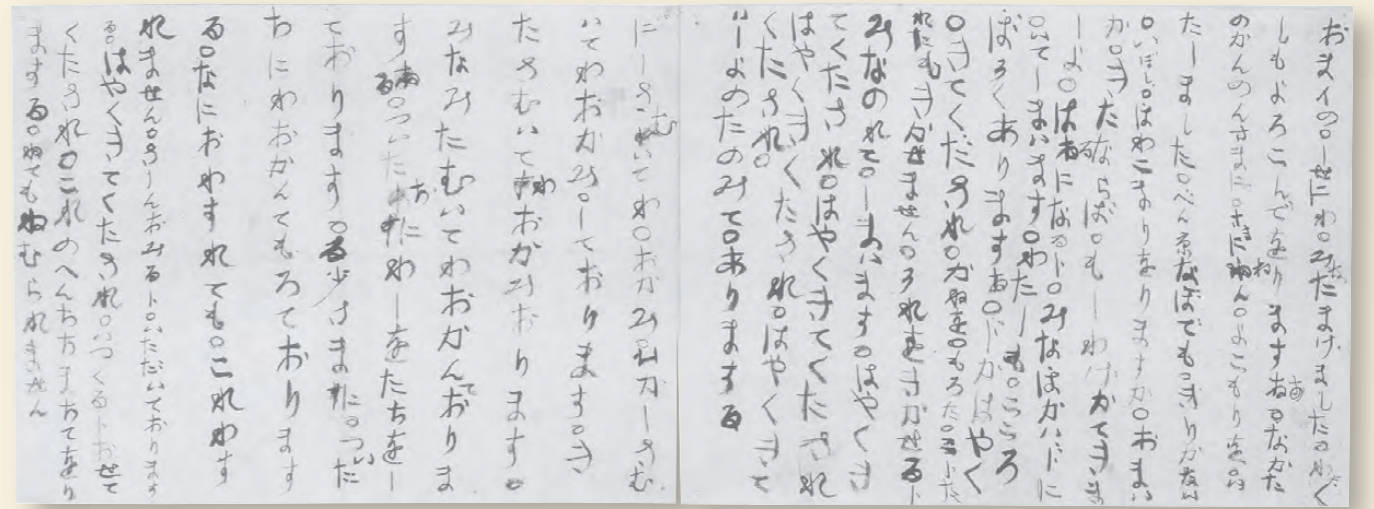 おまイの○しせにわ○みなたまけました○わたく
しもよろこんでをりまする○なかた
のかんのんさまに○さまにねん○よこもりを○い
たしました○べん京なぼでも○きりかない
○いぼし○ほわこまりをりますか○おまい
か○きたならば○もしわけかてきま
しよ○はるになるト○みなほかいドに
○いてしまいます○わたしも○こころ
ぼそくありまする○ドかはやく
○きてくだされ○かねを○もろた○こトた
れにもきかせません○それをきかせるト
みなのれて○しまいます○はやくき
てくたされ○はやくきてくたされ
はやくきてくたされ○はやくきて
くたされ○
いしよのたのみて○ありまする
にしさむいてわ○おかみ○ひかしさむ
いてわおかみ○しております○き
たさむいてわおかみおります○
みなみたむいてわおかんておりま
する○ついたちにわしをたちをし
ております○ゐ少さまに○ついた
ちにわおかんてもろておりま
する○なにおわすれても○これわす
れません○さしんおみるト○いただいております
る○はやくきてくたされ○いつくるトおせて
くたされ○これのへんちちまちてをり
まする○ねてもねむられません